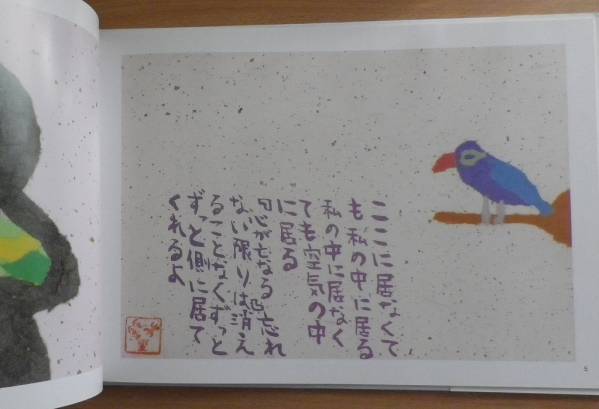 ここに居なくて
も私の中に居る
私の中に居なく
ても空気の中
に居る
心が亡なる忘れ
ない限りは消え
ることなくずっと
ずっと側に居て
くれるよ
5